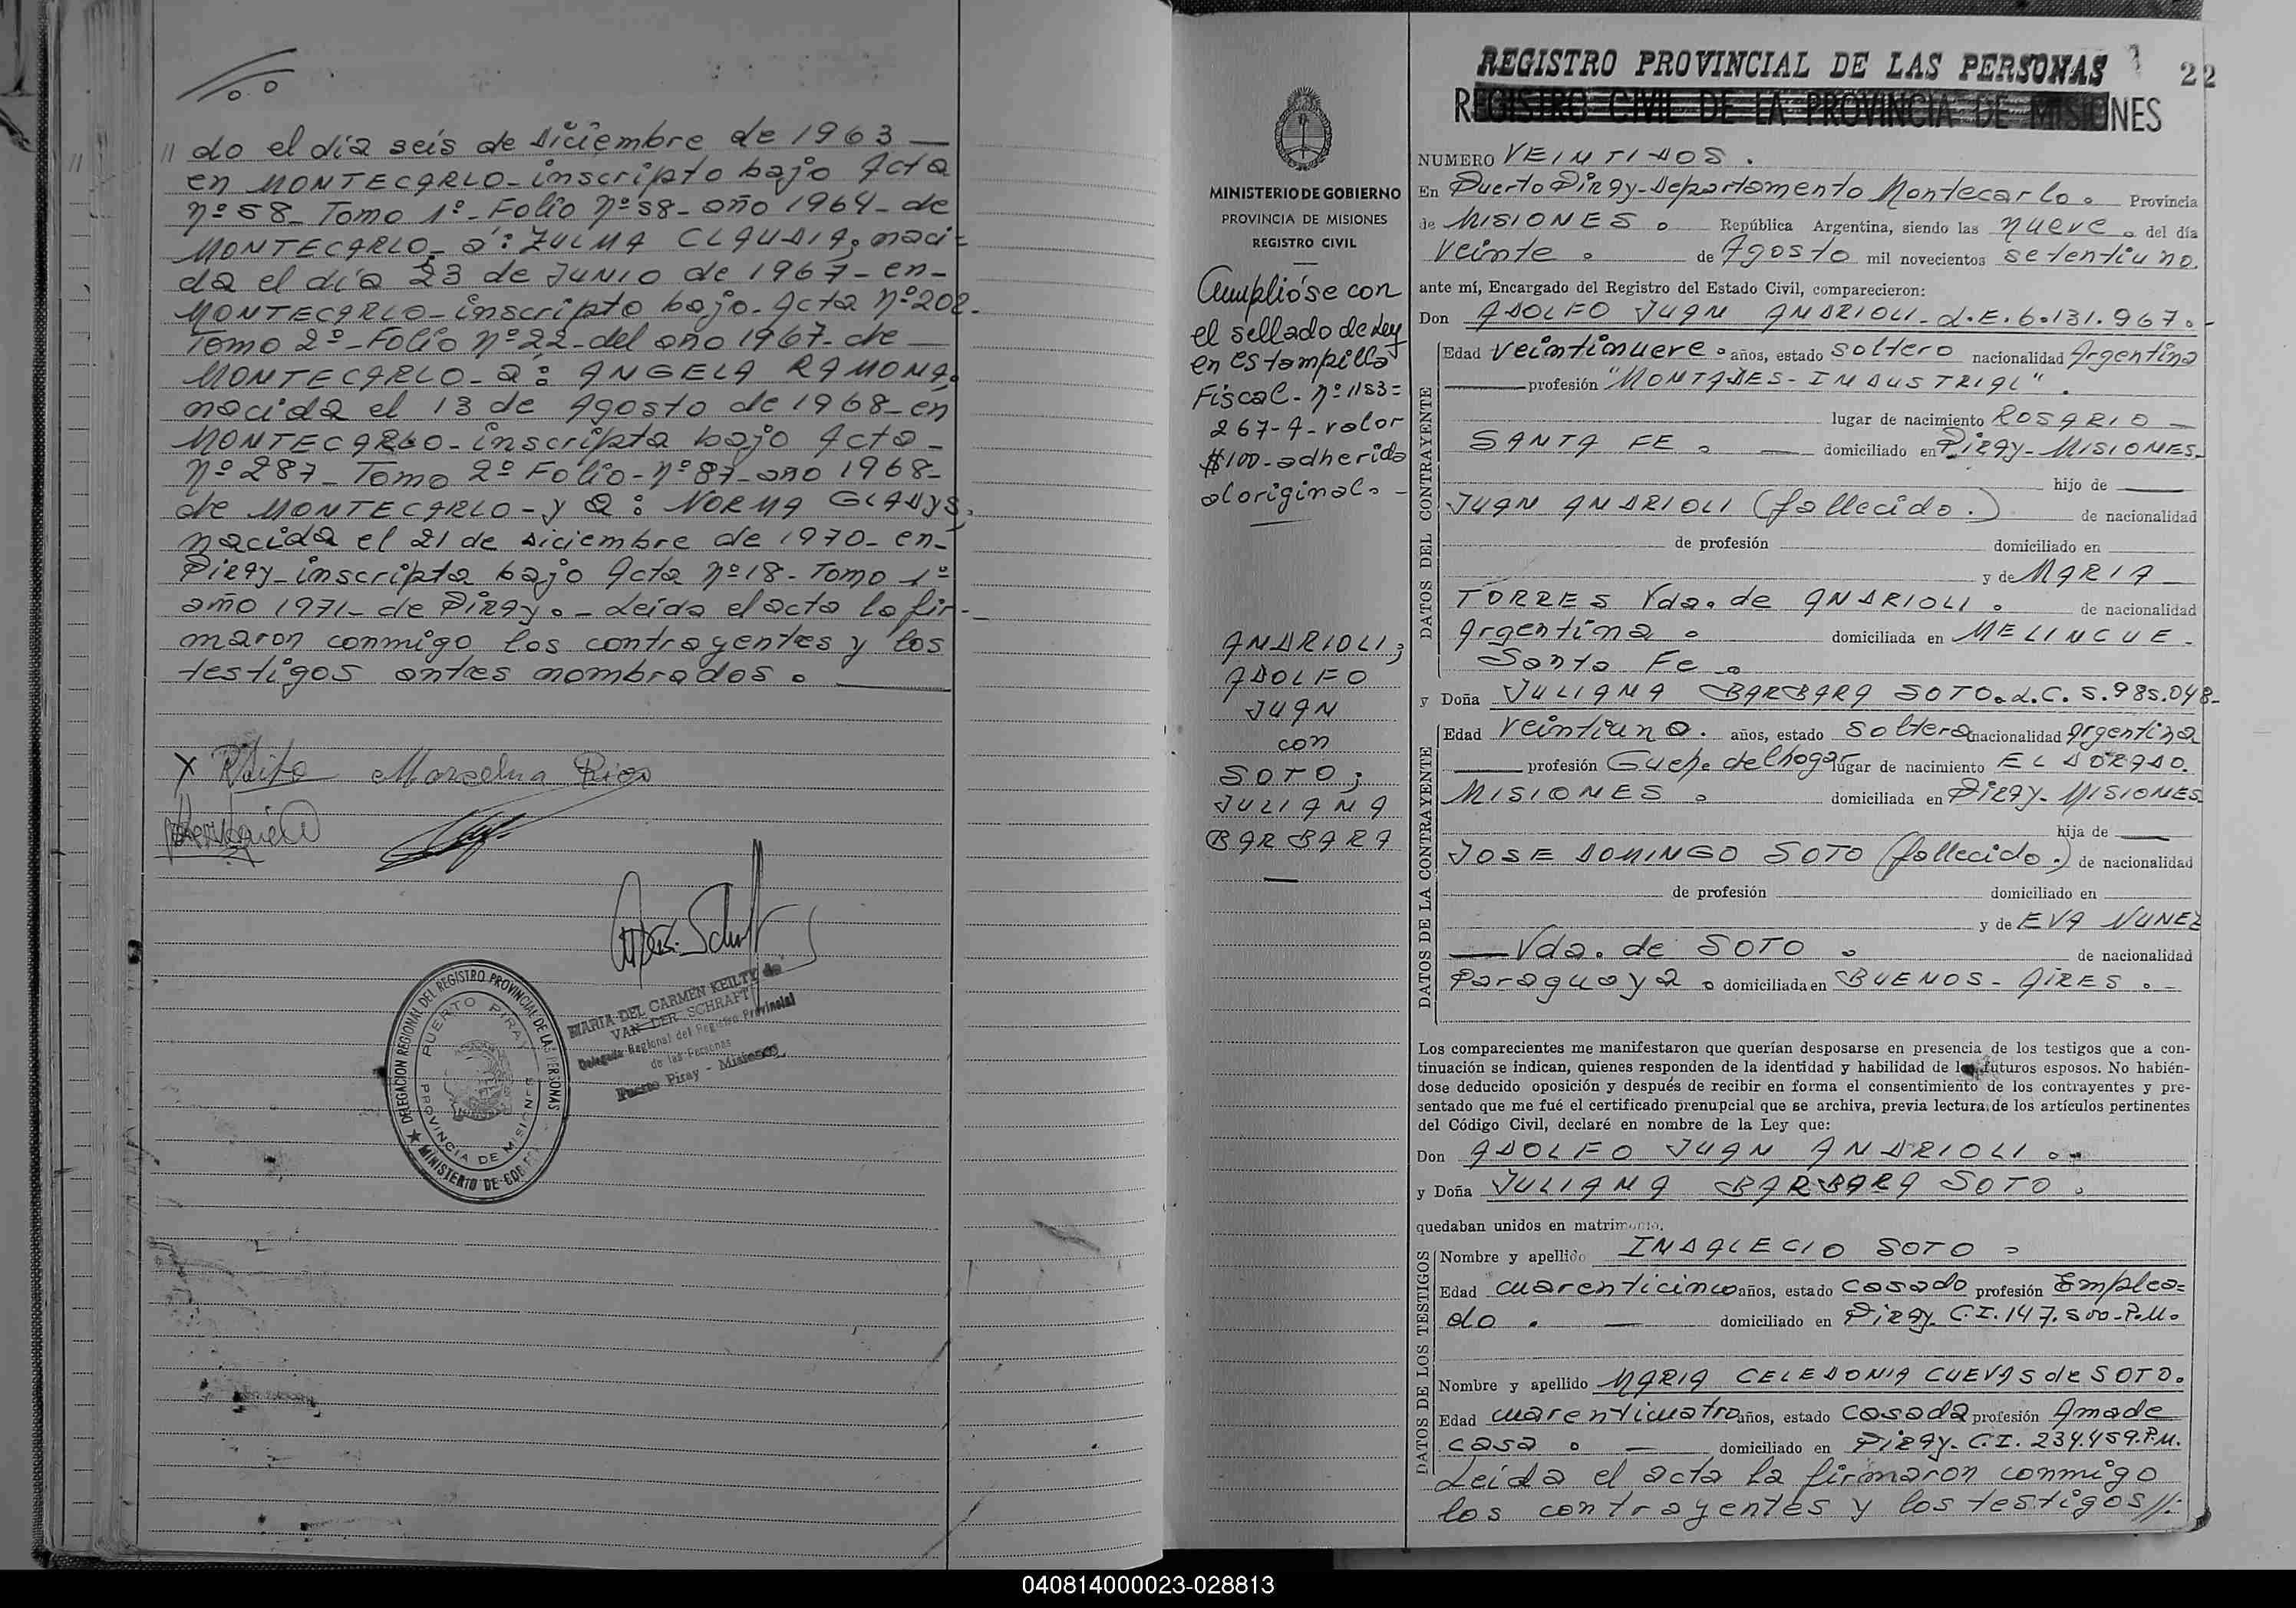 // do el día seis de Diciembre de 1963 —
en MONTECARLO - inscripto bajo Acta
Nº 58 - Tomo 1º - Folio Nº 58 - año 1964 - de
MONTECARLO - a: ZULMA CLAUDIA; naci=
da el día 23 de JUNIO de 1967 - en -
MONTECARLO - inscripto bajo - Acta Nº 202 -
Tomo 2º - Folio Nº 22 - del año 1967 - de —
MONTECARLO - a: ANGELA RAMONA;
nacida el 13 de Agosto de 1968 - en
MONTECARLO - inscripta bajo Acta -
Nº 287 - Tomo 2º Folio - Nº 87 - año 1968 -
de MONTECARLO - y a: NORMA GLADYS;
nacida el 21 de Diciembre de 1970 - en -
Piray - inscripta bajo Acta Nº 18 - Tomo 1º
año 1971 - de Piray. - Leída el acta la fir -
maron conmigo los contrayentes y los
testigos antes nombrados. —
X
MARIA DEL CARMEN KEILTY de
VAN DER SCHRAFT
Delegada Regional del Registro Provincial
de las Personas
Puerto Piray - Misiones
DELEGACION REGIONAL DEL REGISTRO PROVINCIAL DE LAS PERSONAS
PUERTO PIRAY
PROVINCIA DE MISIONES
★ MINISTERIO DE GOB.
MINISTERIO DE GOBIERNO
PROVINCIA DE MISIONES
REGISTRO CIVIL
Cumplióse con
el sellado de Ley
en estampilla
Fiscal - Nº 1183=
267-A - valor
$100 - adherida
al original. -
ANDRIOLI;
ADOLFO
JUAN
con
SOTO;
JULIANA
BARBARA
REGISTRO PROVINCIAL DE LAS PERSONAS 22
REGISTRO CIVIL DE LA PROVINCIA DE MISIONES
NUMERO VEINTIDOS.
En Puerto Piray - Departamento Montecarlo. Provincia
de MISIONES. República Argentina, siendo las nueve. del día
veinte. de Agosto mil novecientos setentiuno.
ante mí, Encargado del Registro del Estado Civil, comparecieron:
Don ADOLFO JUAN ANDRIOLI - L.E. 6.131.967. -
DATOS DEL CONTRAYENTE
Edad veintinueve. años, estado soltero nacionalidad Argentina
— profesión "MONTAJES - INDUSTRIAL".
lugar de nacimiento ROSARIO —
SANTA FE. — domiciliado en Piray - MISIONES -
hijo de —
JUAN ANDRIOLI (fallecido.) de nacionalidad
de profesión domiciliado en
y de MARIA —
TORRES Vda. de ANDRIOLI. de nacionalidad
Argentina. domiciliada en MELINCUE -
Santa Fe.
y Doña JULIANA BARBARA SOTO. L.C. 5.985.048 -
DATOS DE LA CONTRAYENTE
Edad Veintiuno. años, estado Soltera nacionalidad Argentina
— profesión Queh. del hogar lugar de nacimiento ELDORADO.
MISIONES. domiciliada en Piray - MISIONES
hija de —
JOSE DOMINGO SOTO (fallecido.) de nacionalidad
de profesión domiciliado en
y de EVA NUNEZ
— Vda. de SOTO. de nacionalidad
Paraguaya. domiciliada en BUENOS - AIRES. -
Los comparecientes me manifestaron que querían desposarse en presencia de los testigos que a con-
tinuación se indican, quienes responden de la identidad y habilidad de los futuros esposos. No habién-
dose deducido oposición y después de recibir en forma el consentimiento de los contrayentes y pre-
sentado que me fué el certificado prenupcial que se archiva, previa lectura de los artículos pertinentes
del Código Civil, declaré en nombre de la Ley que:
Don ADOLFO JUAN ANDRIOLI. -
y Doña JULIANA BARBARA SOTO.
quedaban unidos en matrimonio.
DATOS DE LOS TESTIGOS
Nombre y apellido INDALECIO SOTO.
Edad cuarenticinco años, estado casado profesión Emplea=
do. — domiciliado en Piray C.I. 147.500 - P.M.
Nombre y apellido MARIA CELEDONIA CUEVAS de SOTO.
Edad cuarenticuatro años, estado casada profesión Ama de
casa. — domiciliado en Piray - C.I. 234.459. P.M.
Leída el acta la firmaron conmigo
los contrayentes y los testigos //:
040814000023-028813